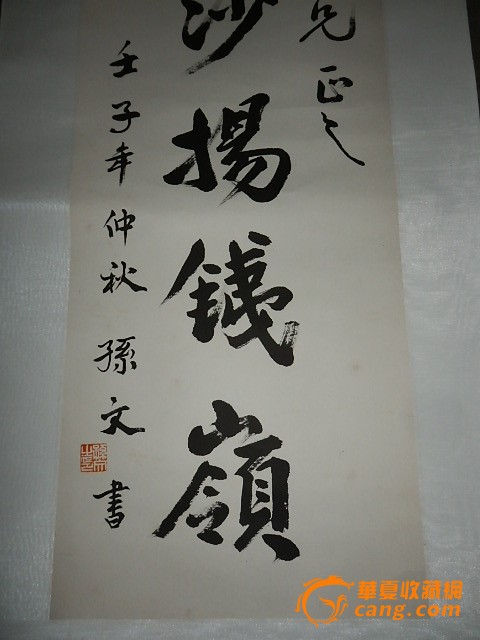 兄正之
沙揚鐵嶺
壬子年仲秋 孫文書
華夏收藏網
cang.com